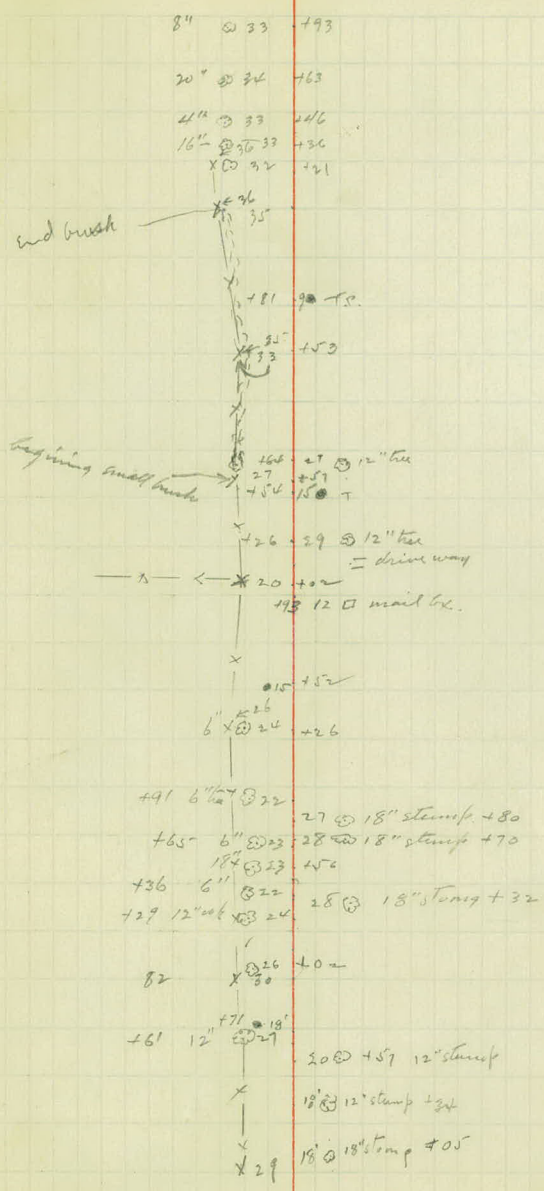 8" 33 +93
20" 34 +63
4" 33 +46
16" 36 33 +36
32 +21
36
35
end brush
+81 9 T.
35
33 +53
+64 27 12" tree
begining small brush
27 +57
+54 15 T
+26 29 12" tree
= drive way
20 +02
+93 12 mail bx.
15 +52
26
6" 24 +26
+91 6" 22
27 18" stump +80
+65 6" 23 28 18" stump +70
18" 23 +56
+36 6" 22
28 18" stump +32
+29 12" 24
26 +02
82 30
+71 18'
+61 12" 27
20 +57 12" stump
18' 12" stump +34
18' 18" stump +05
29